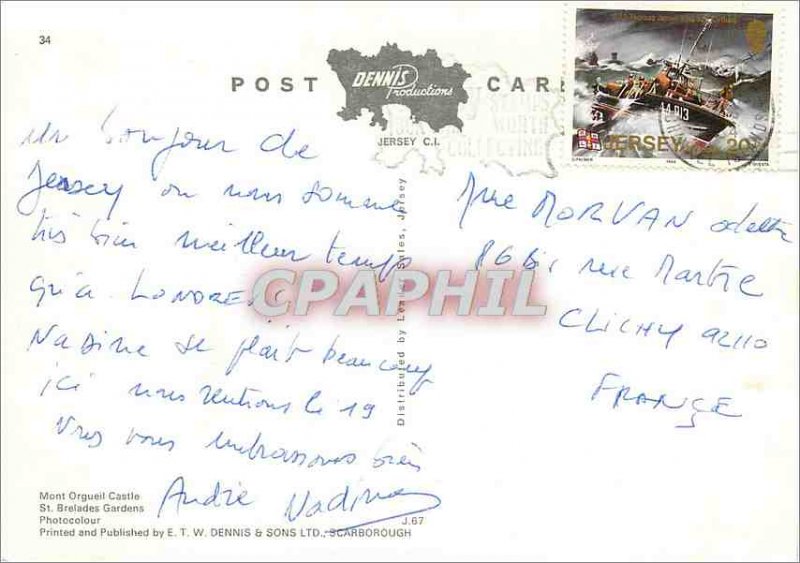 34
POST CARD
DENNIS
Productions
JERSEY C.I.
JERSEY 20
44 013
un bonjour de
Jersey ou nous somme
très bien meilleur temps
qu'a LONDRES
Nadine se plait beaucoup
ici nous rentrons le 19
Nous vous embrassons bien
André Nadine
Mme MORVAN odette
86 bis rue Martre
CLICHY 92110
FRANCE
CPAPHIL
Distributed by Lesley Sales, Jersey
Mont Orgueil Castle
St. Brelades Gardens
Photocolour
J.67
Printed and Published by E. T. W. DENNIS & SONS LTD., SCARBOROUGH